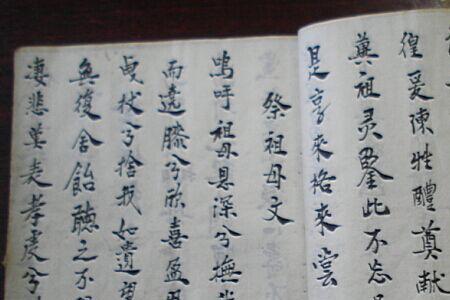 徨爰陳牲醴奠献
冀祖灵鑒此不忘
是享來格來嘗
祭祖母文
嗚呼祖母恩深兮撫
而遶膝兮欣喜盈
曳杖兮捨我如遺
無復含飴聽之不
悽悲莫表孝虔兮